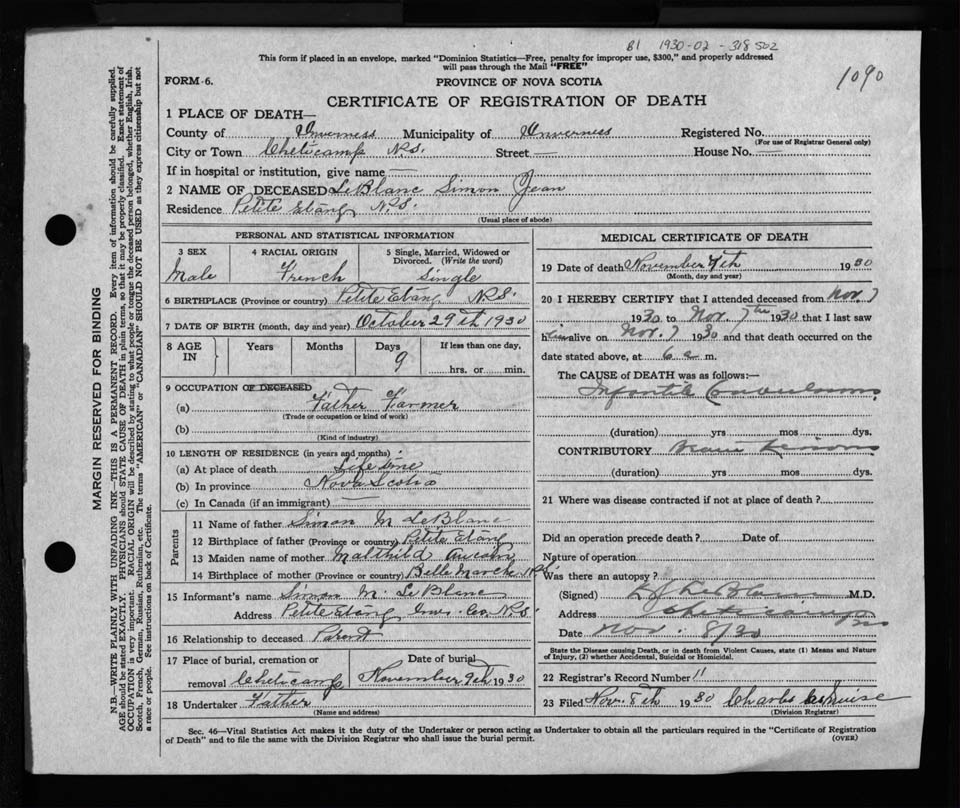 B1 1930-02-318502
1090
This form if placed in an envelope, marked "Dominion Statistics—Free, penalty for improper use, $300," and properly addressed
will pass through the Mail "FREE"
FORM 6.
PROVINCE OF NOVA SCOTIA
CERTIFICATE OF REGISTRATION OF DEATH
1 PLACE OF DEATH—
County of Inverness Municipality of Inverness Registered No.
(For use of Registrar General only)
City or Town Cheticamp N.S. Street — House No. —
If in hospital or institution, give name —
2 NAME OF DECEASED LeBlanc Simon Jean
Residence Petite Etang N.S.
(Usual place of abode)
PERSONAL AND STATISTICAL INFORMATION
3 SEX 4 RACIAL ORIGIN 5 Single, Married, Widowed or
Divorced. (Write the word)
Male French Single
6 BIRTHPLACE (Province or country) Petite Etang N.S.
7 DATE OF BIRTH (month, day and year) October 29th 1930
8 AGE IN Years Months Days If less than one day,
9
hrs. or min.
9 OCCUPATION OF DECEASED
(a) Father Farmer
(Trade or occupation or kind of work)
(b)
(Kind of industry)
10 LENGTH OF RESIDENCE (in years and months):
(a) At place of death Life time
(b) In province Nova Scotia
(c) In Canada (if an immigrant) —
Parents
11 Name of father Simon M LeBlanc
12 Birthplace of father (Province or country) Petite Etang
13 Maiden name of mother Malthild Aucoin
14 Birthplace of mother (Province or country) Belle Marche N.S.
15 Informant's name Simon M. LeBlanc
Address Petite Etang Inv. Co. N.S.
16 Relationship to deceased Parent
17 Place of burial, cremation or Date of burial
removal Cheticamp November 9th 1930
18 Undertaker Father
(Name and address)
MEDICAL CERTIFICATE OF DEATH
19 Date of death November 7th 1930
(Month, day and year)
20 I HEREBY CERTIFY that I attended deceased from Nov. 7
1930 to Nov. 7th 1930 that I last saw
h im alive on Nov. 7 30 and that death occurred on the
date stated above, at 6 a m.
The CAUSE of DEATH was as follows:—
Infantile Convulsions
(duration) yrs mos dys.
CONTRIBUTORY Brain
(duration) yrs mos dys.
21 Where was disease contracted if not at place of death?
Did an operation precede death? Date of
Nature of operation
Was there an autopsy?
(Signed) LeBlanc M.D.
Address Cheticamp
Date Nov. 8/30
State the Disease causing Death, or in death from Violent Causes, state (1) Means and Nature
of Injury, (2) whether Accidental, Suicidal or Homicidal.
22 Registrar's Record Number 11
23 Filed Nov. 8th 1930 Charles
(Division Registrar)
Sec. 46—Vital Statistics Act makes it the duty of the Undertaker or person acting as Undertaker to obtain all the particulars required in the "Certificate of Registration
of Death" and to file the same with the Division Registrar who shall issue the burial permit. (OVER)
MARGIN RESERVED FOR BINDING
N.B.—WRITE PLAINLY WITH UNFADING INK—THIS IS A PERMANENT RECORD. Every item of information should be carefully supplied.
AGE should be stated EXACTLY. PHYSICIANS should STATE CAUSE OF DEATH in plain terms, so that it may be properly classified. Exact statement of
OCCUPATION is very important. RACIAL ORIGIN will be described by stating to what people or tongue the deceased person belonged, whether English, Irish,
Scotch, French, German, Russian, Ruthenian, etc. The terms "AMERICAN" or "CANADIAN" SHOULD NOT BE USED as they express citizenship but not
a race or people. See instructions on back of Certificate.